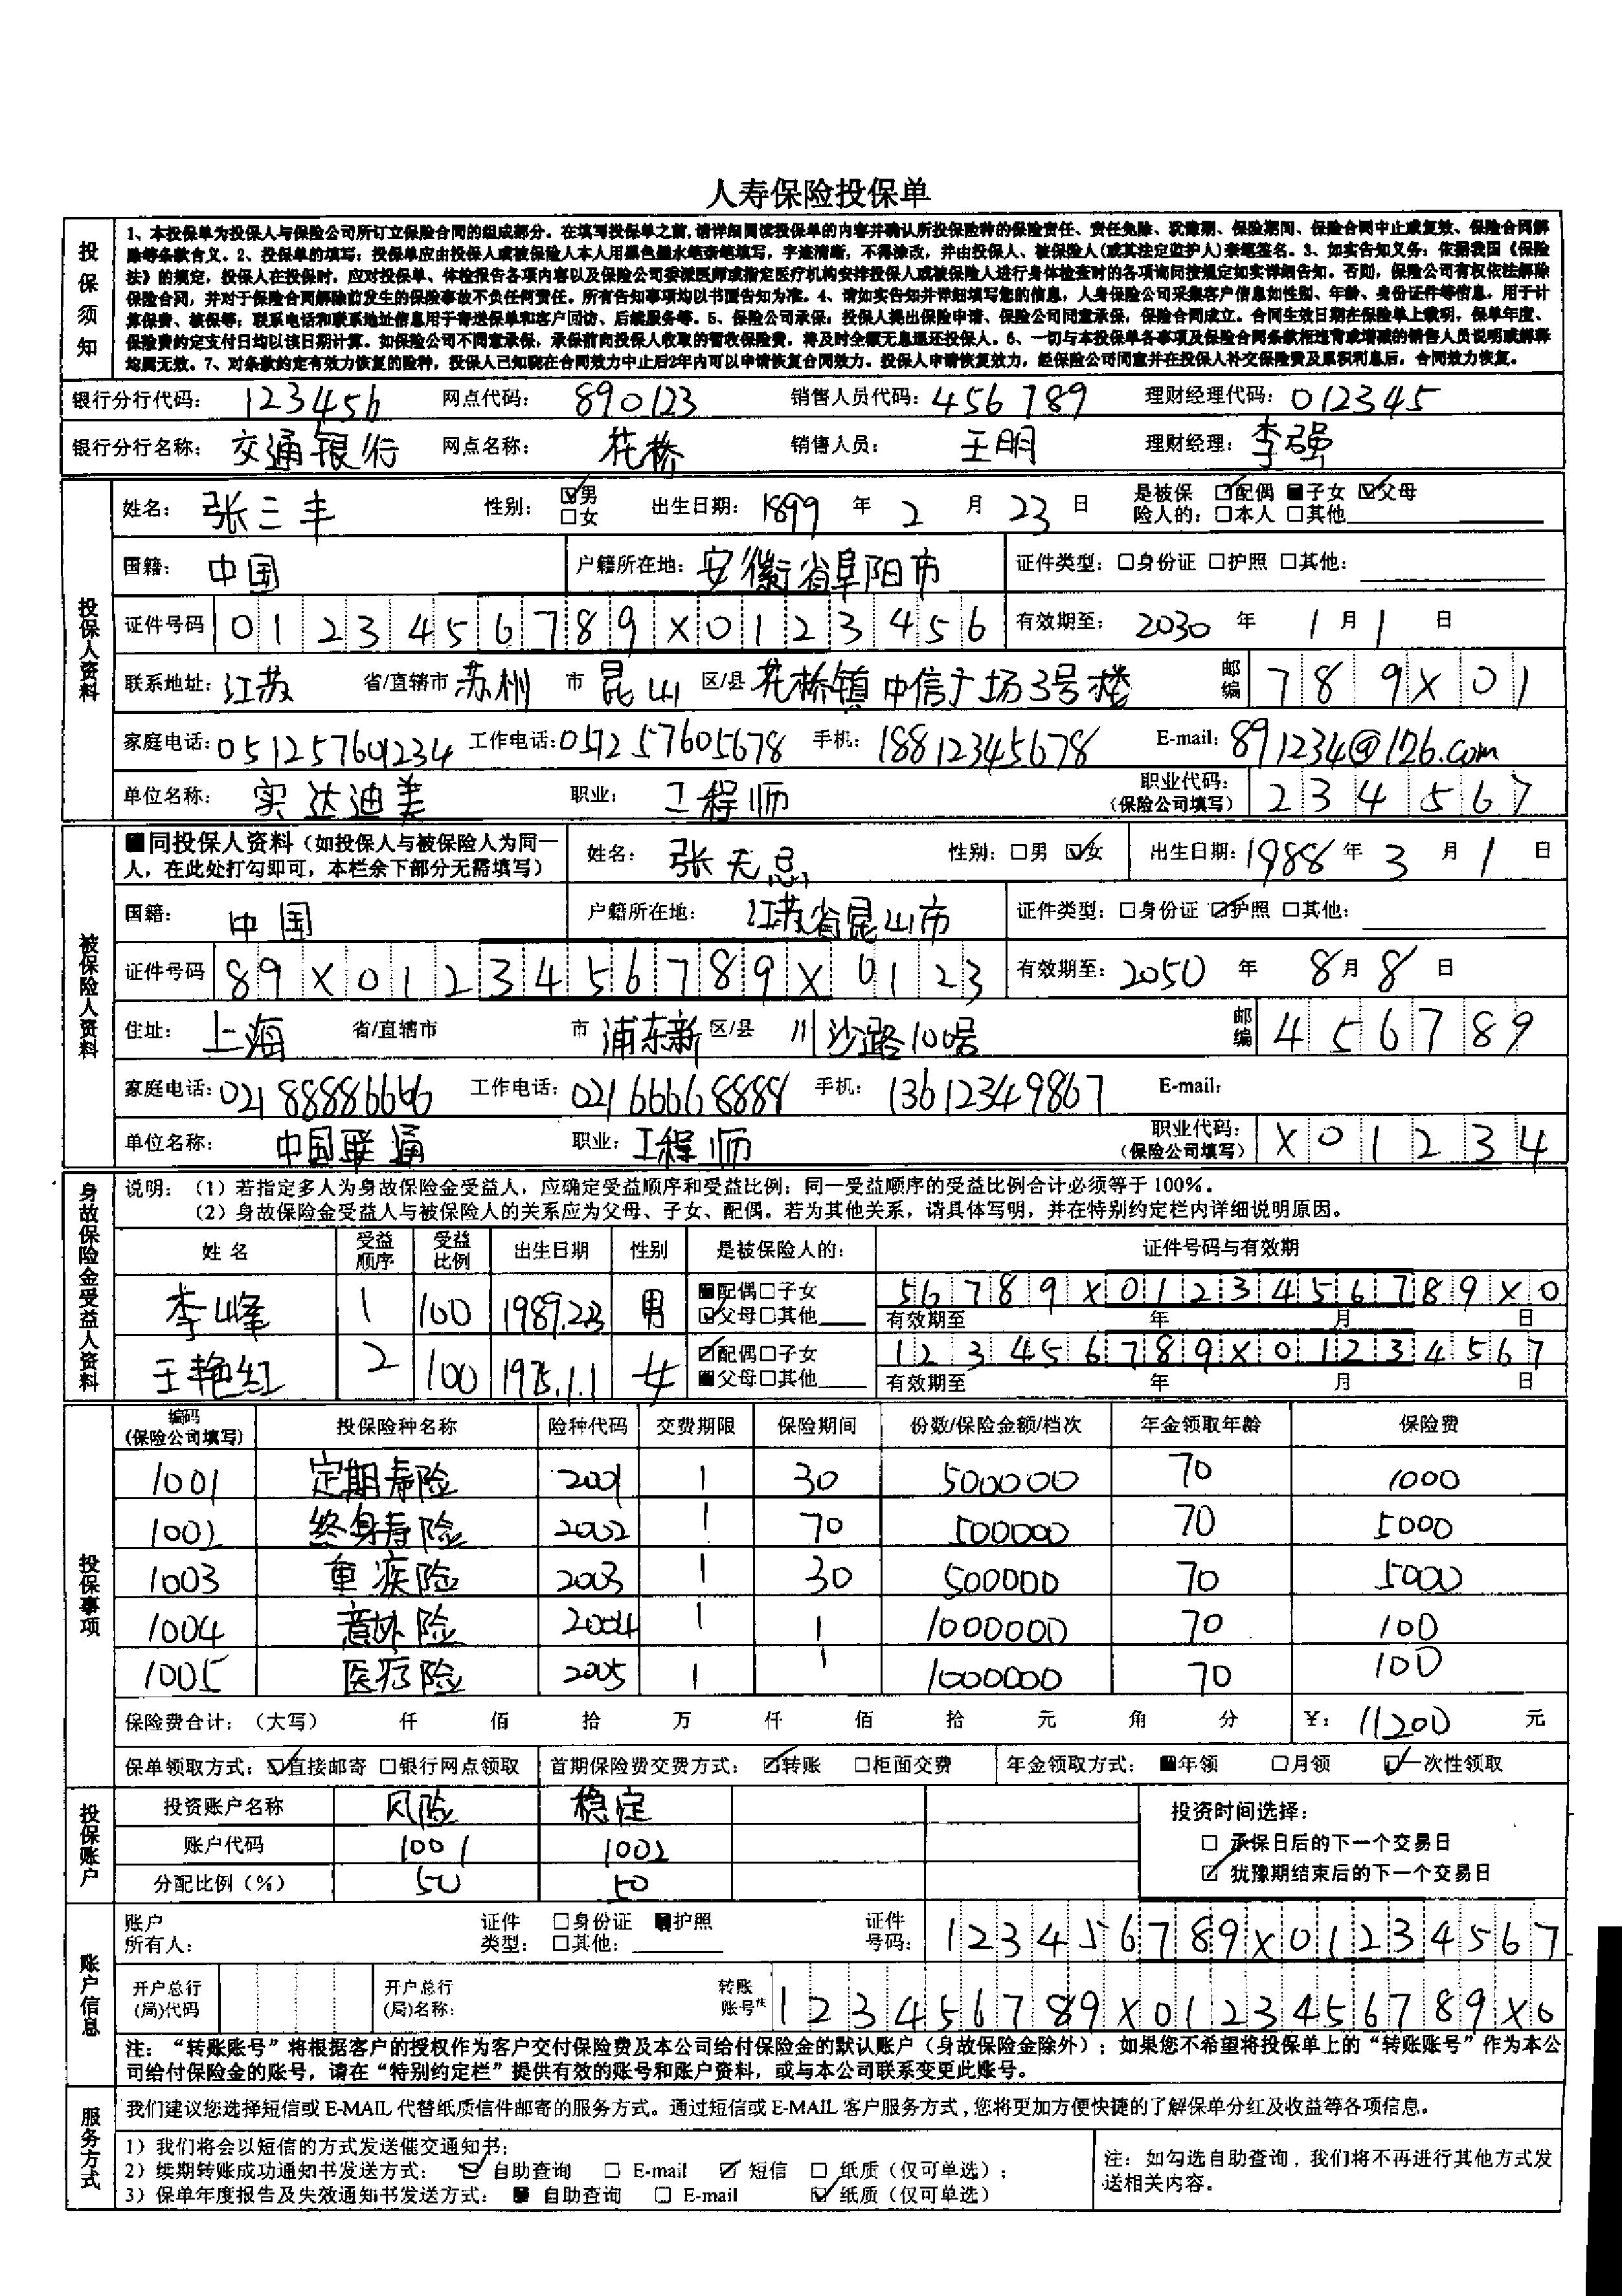 人寿保险投保单
投保须知
1、本投保单为投保人与保险公司所订立保险合同的组成部分。在填写投保单之前,请详细阅读投保单的内容并确认所投保险种的保险责任、责任免除、犹豫期、保险期间、保险合同中止或复效、保险合同解
除等条款含义。2、投保单的填写：投保单应由投保人或被保险人本人用黑色墨水笔亲笔填写，字迹清晰，不得涂改，并由投保人、被保险人(或其法定监护人)亲笔签名。3、如实告知义务：依据我国《保险
法》的规定，投保人在投保时，应对投保单、体检报告各项内容以及保险公司委派医师或指定医疗机构安排投保人或被保险人进行身体检查时的各项询问按规定如实详细告知。否则，保险公司有权依法解除
保险合同，并对于保险合同解除前发生的保险事故不负任何责任。所有告知事项均以书面告知为准。4、请如实告知并详细填写您的信息，人身保险公司采集客户信息如性别、年龄、身份证件等信息，用于计
算保费、核保等；联系电话和联系地址信息用于寄送保单和客户回访、后续服务等。5、保险公司承保：投保人提出保险申请、保险公司同意承保，保险合同成立。合同生效日期在保险单上载明，保单年度、
保险费约定支付日均以该日期计算。如保险公司不同意承保，承保前向投保人收取的暂收保险费，将及时全额无息退还投保人。6、一切与本投保单各事项及保险合同条款相违背或增减的销售人员说明或解释
均属无效。7、对条款约定有效力恢复的险种，投保人已知晓在合同效力中止后2年内可以申请恢复合同效力。投保人申请恢复效力，经保险公司同意并在投保人补交保险费及累积利息后，合同效力恢复。
银行分行代码： 123456 网点代码： 890123 销售人员代码：456789 理财经理代码：012345
银行分行名称： 交通银行 网点名称： 花桥 销售人员： 王明 理财经理：李强
投保人资料
姓名： 张三丰 性别： ☑男 □女 出生日期：1899 年 2 月 23 日 是被保 ☑配偶 ■子女 ☑父母
险人的：□本人 □其他
国籍： 中国 户籍所在地：安徽省阜阳市 证件类型：□身份证 □护照 □其他：
证件号码 0123456789X0123456 有效期至： 2030 年 1 月 1 日
联系地址：江苏 省/直辖市 苏州 市 昆山 区/县 花桥镇中信广场3号楼 邮编 789X01
家庭电话：051257601234 工作电话：051257605678 手机：18812345678 E-mail：891234@126.com
单位名称： 实达迪美 职业： 工程师 职业代码：（保险公司填写） 234567
被保险人资料
■同投保人资料（如投保人与被保险人为同一 姓名： 张无忌 性别：□男 ☑女 出生日期：1988 年 3 月 1 日
人，在此处打勾即可，本栏余下部分无需填写）
国籍： 中国 户籍所在地： 江苏省昆山市 证件类型：□身份证 ☑护照 □其他：
证件号码 89X0123456789X0123 有效期至：2050 年 8 月 8 日
住址： 上海 省/直辖市 市 浦东新 区/县 川沙路100号 邮编 456789
家庭电话：02188886666 工作电话：02166668888 手机：13612349867 E-mail：
单位名称： 中国联通 职业：工程师 职业代码：（保险公司填写） X01234
身故保险金受益人资料
说明：（1）若指定多人为身故保险金受益人，应确定受益顺序和受益比例；同一受益顺序的受益比例合计必须等于100%。
（2）身故保险金受益人与被保险人的关系应为父母、子女、配偶。若为其他关系，请具体写明，并在特别约定栏内详细说明原因。
姓 名 受益顺序 受益比例 出生日期 性别 是被保险人的： 证件号码与有效期
李峰 1 100 1989.2.3 男 ■配偶□子女 56789X0123456789X0
☑父母□其他 有效期至 年 月 日
王艳红 2 100 1975.1.1 女 ☑配偶□子女 123456789X01234567
■父母□其他 有效期至 年 月 日
投保事项
编码（保险公司填写） 投保险种名称 险种代码 交费期限 保险期间 份数/保险金额/档次 年金领取年龄 保险费
1001 定期寿险 2001 1 30 500000 70 1000
1002 终身寿险 2002 1 70 500000 70 5000
1003 重疾险 2003 1 30 500000 70 5000
1004 意外险 2004 1 1 1000000 70 100
1005 医疗险 2005 1 1 1000000 70 100
保险费合计：（大写） 仟 佰 拾 万 仟 佰 拾 元 角 分 ￥：11200 元
保单领取方式：☑直接邮寄 □银行网点领取 首期保险费交费方式：☑转账 □柜面交费 年金领取方式：■年领 □月领 ☑一次性领取
投保账户
投资账户名称 风险 稳定 投资时间选择：
账户代码 1001 1002 □ 承保日后的下一个交易日
分配比例（%） 50 50 ☑ 犹豫期结束后的下一个交易日
账户信息
账户所有人： 证件类型： □身份证 ■护照 □其他： 证件号码： 123456789X01234567
开户总行(局)代码 开户总行(局)名称： 转账账号 123456789X0123456789X0
注：“转账账号”将根据客户的授权作为客户交付保险费及本公司给付保险金的默认账户（身故保险金除外）；如果您不希望将投保单上的“转账账号”作为本公
司给付保险金的账号，请在“特别约定栏”提供有效的账号和账户资料，或与本公司联系变更此账号。
服务方式
我们建议您选择短信或 E-MAIL 代替纸质信件邮寄的服务方式。通过短信或 E-MAIL 客户服务方式,您将更加方便快捷的了解保单分红及收益等各项信息。
1）我们将会以短信的方式发送催交通知书；
2）续期转账成功通知书发送方式： ☑ 自助查询 □ E-mail ☑ 短信 □ 纸质（仅可单选）；
3）保单年度报告及失效通知书发送方式：■ 自助查询 □ E-mail ☑ 纸质（仅可单选）
注：如勾选自助查询，我们将不再进行其他方式发
送相关内容。